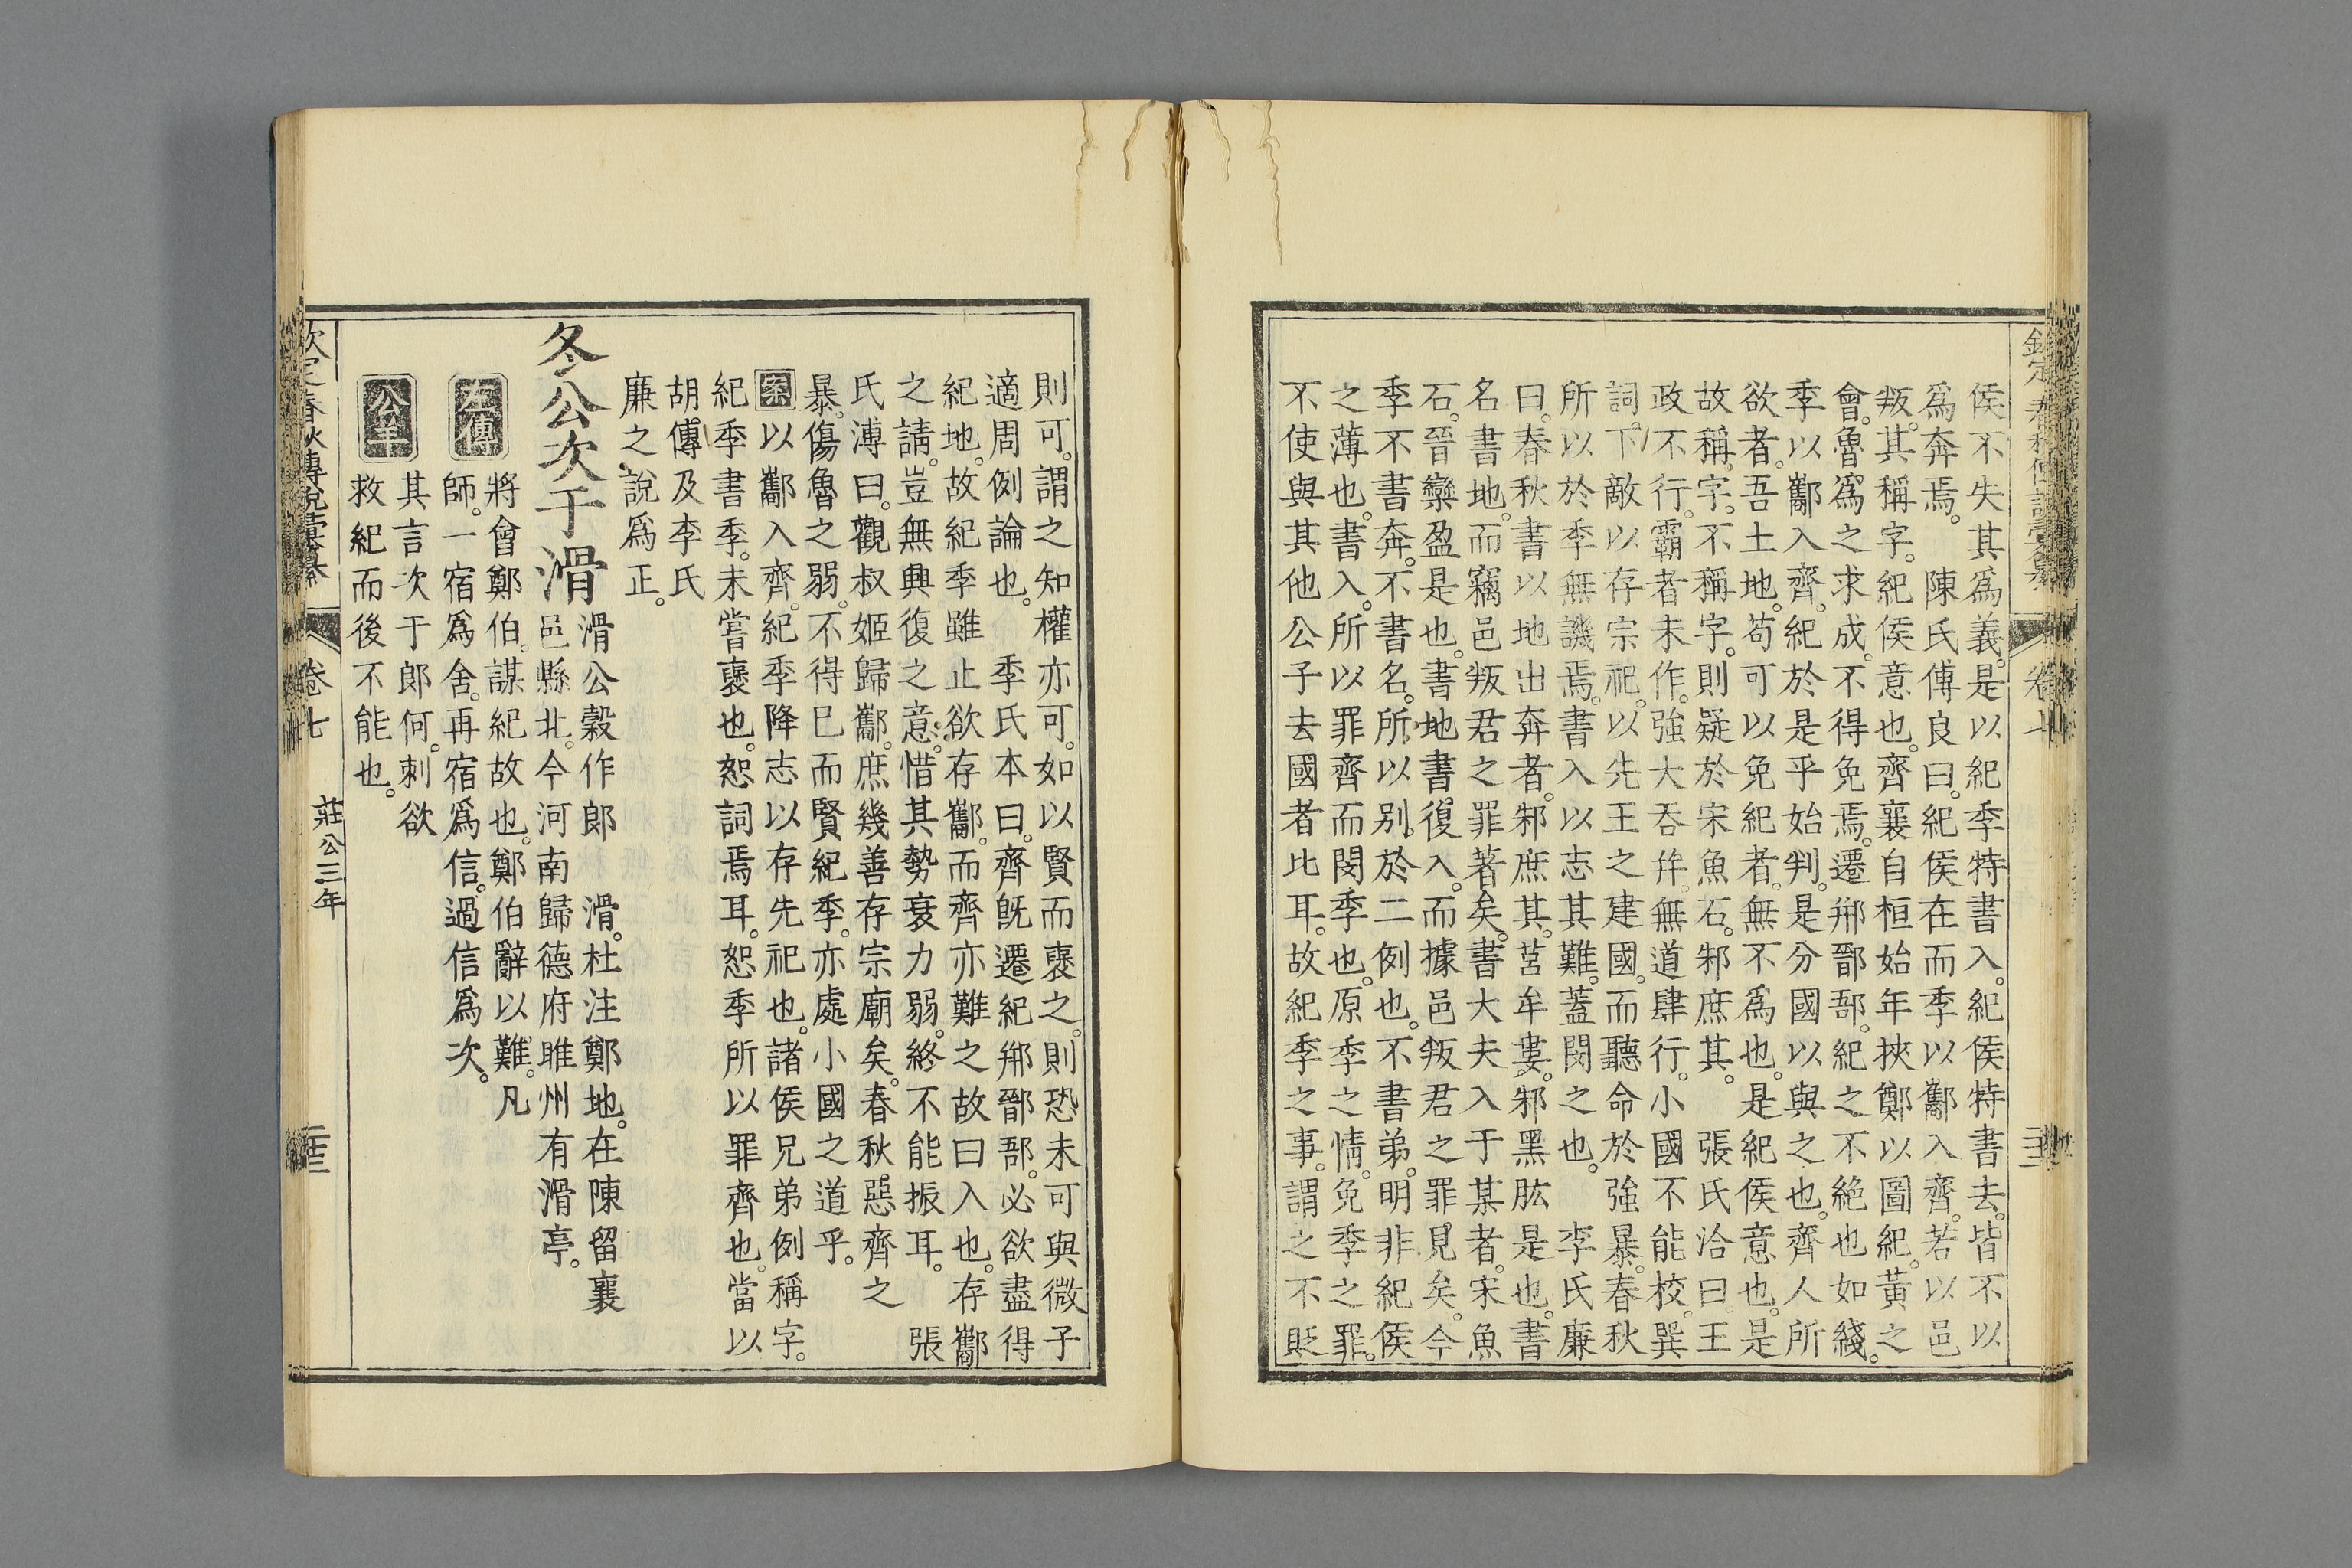 侯不失其爲義。是以紀季特書入。紀侯特書去。皆不以
爲奔焉。 陳氏傅良曰。紀侯在而季以酅入齊。若以邑
叛。其稱字。紀侯意也。齊襄自桓始年挾鄭以圖紀。黃之
會。魯爲之求成。不得免焉。遷郱鄑郚。紀之不絶也如綫。
季以酅入齊。紀於是乎始判。是分國以與之也。齊人所
欲者。吾土地。苟可以免紀者。無不爲也。是紀侯意也。是
故稱字。不稱字。則疑於宋魚石。邾庶其。 張氏洽曰。王
政不行。霸者未作。強大吞幷。無道肆行。小國不能校。巽
詞下敵。以存宗祀。以先王之建國。而聽命於強暴。春秋
所以於季無譏焉。書入以志其難。蓋閔之也。 李氏廉
曰。春秋書以地出奔者。邾庶其。莒牟婁。邾黑肱是也。書
名書地。而竊邑叛君之罪著矣。書大夫入于某者。宋魚
石。晉欒盈是也。書地書。復入。而據邑叛君之罪見矣。今
季不書奔。不書名。所以别。於二例也。不書弟。明非紀侯
之薄也。書入。所以罪齊而閔季也。原季之情。免季之罪。
不使與其他公子去國者比耳。故紀季之事。謂之不貶
欽定春秋傳說彙纂 卷七
則可。謂之知權亦可。如以賢而襃之。則恐未可與微子
適周例論也。 季氏本曰。齊旣遷紀郱鄑郚。必欲盡得
紀地。故紀季雖止欲存酅。而齊亦難之故曰入也。存酅
之請。豈無興復之意。惜其勢衰力弱。終不能振耳。 張
氏溥曰。觀叔姬歸酅。庶幾善存宗廟矣。春秋惡齊之
暴。傷魯之弱。不得已而賢紀季。亦處小國之道乎。
案以酅入齊。紀季降志以存先祀也。諸侯兄弟例稱字。
紀季書季。未嘗襃也。恕詞焉耳。恕季所以罪齊也。當以
胡傳及李氏
廉之說爲正。
冬公次于滑 滑公穀作郎 滑。杜注鄭地。在陳留襄
邑縣北。今河南歸德府睢州有滑亭。
左傳 將會鄭伯。謀紀故也。鄭伯辭以難。凡
師。一宿爲舍。再宿爲信。過信爲次。
公羊 其言次于郎何。刺欲
救紀而後不能也。
欽定春秋傳說彙纂 卷七 莊公三年